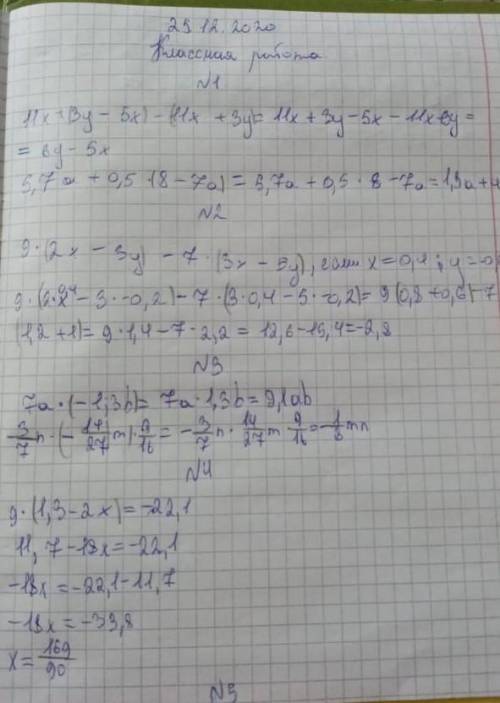 25.12.2020
Классная работа
№1
11x+(3y-5x)-(11x+3y)=11x+3y-5x-11x+3y=
=6y-5x
5,7a+0,5(8-7a)=5,7a+0,5·8-7a=1,3a+4
№2
9·(2x-3y)-7·(3x-5y), если x=0,4; y=-0
9·(2·0,4-3·-0,2)-7·(3·0,4-5·-0,2)=9(0,8+0,6)-7
(1,2+1)=9·1,4-7·2,2=12,6-15,4=-2,8
№3
7a·(-1,3b)=7a·1,3b=9,1ab
3/7n·(-14/27m)·9/16=-3/7n·14/27m·9/16=-1/8mn
№4
9·(1,3-2x)=-22,1
11,7-18x=-22,1
-18x=-22,1-11,7
-18x=-33,8
x=169/90
№5